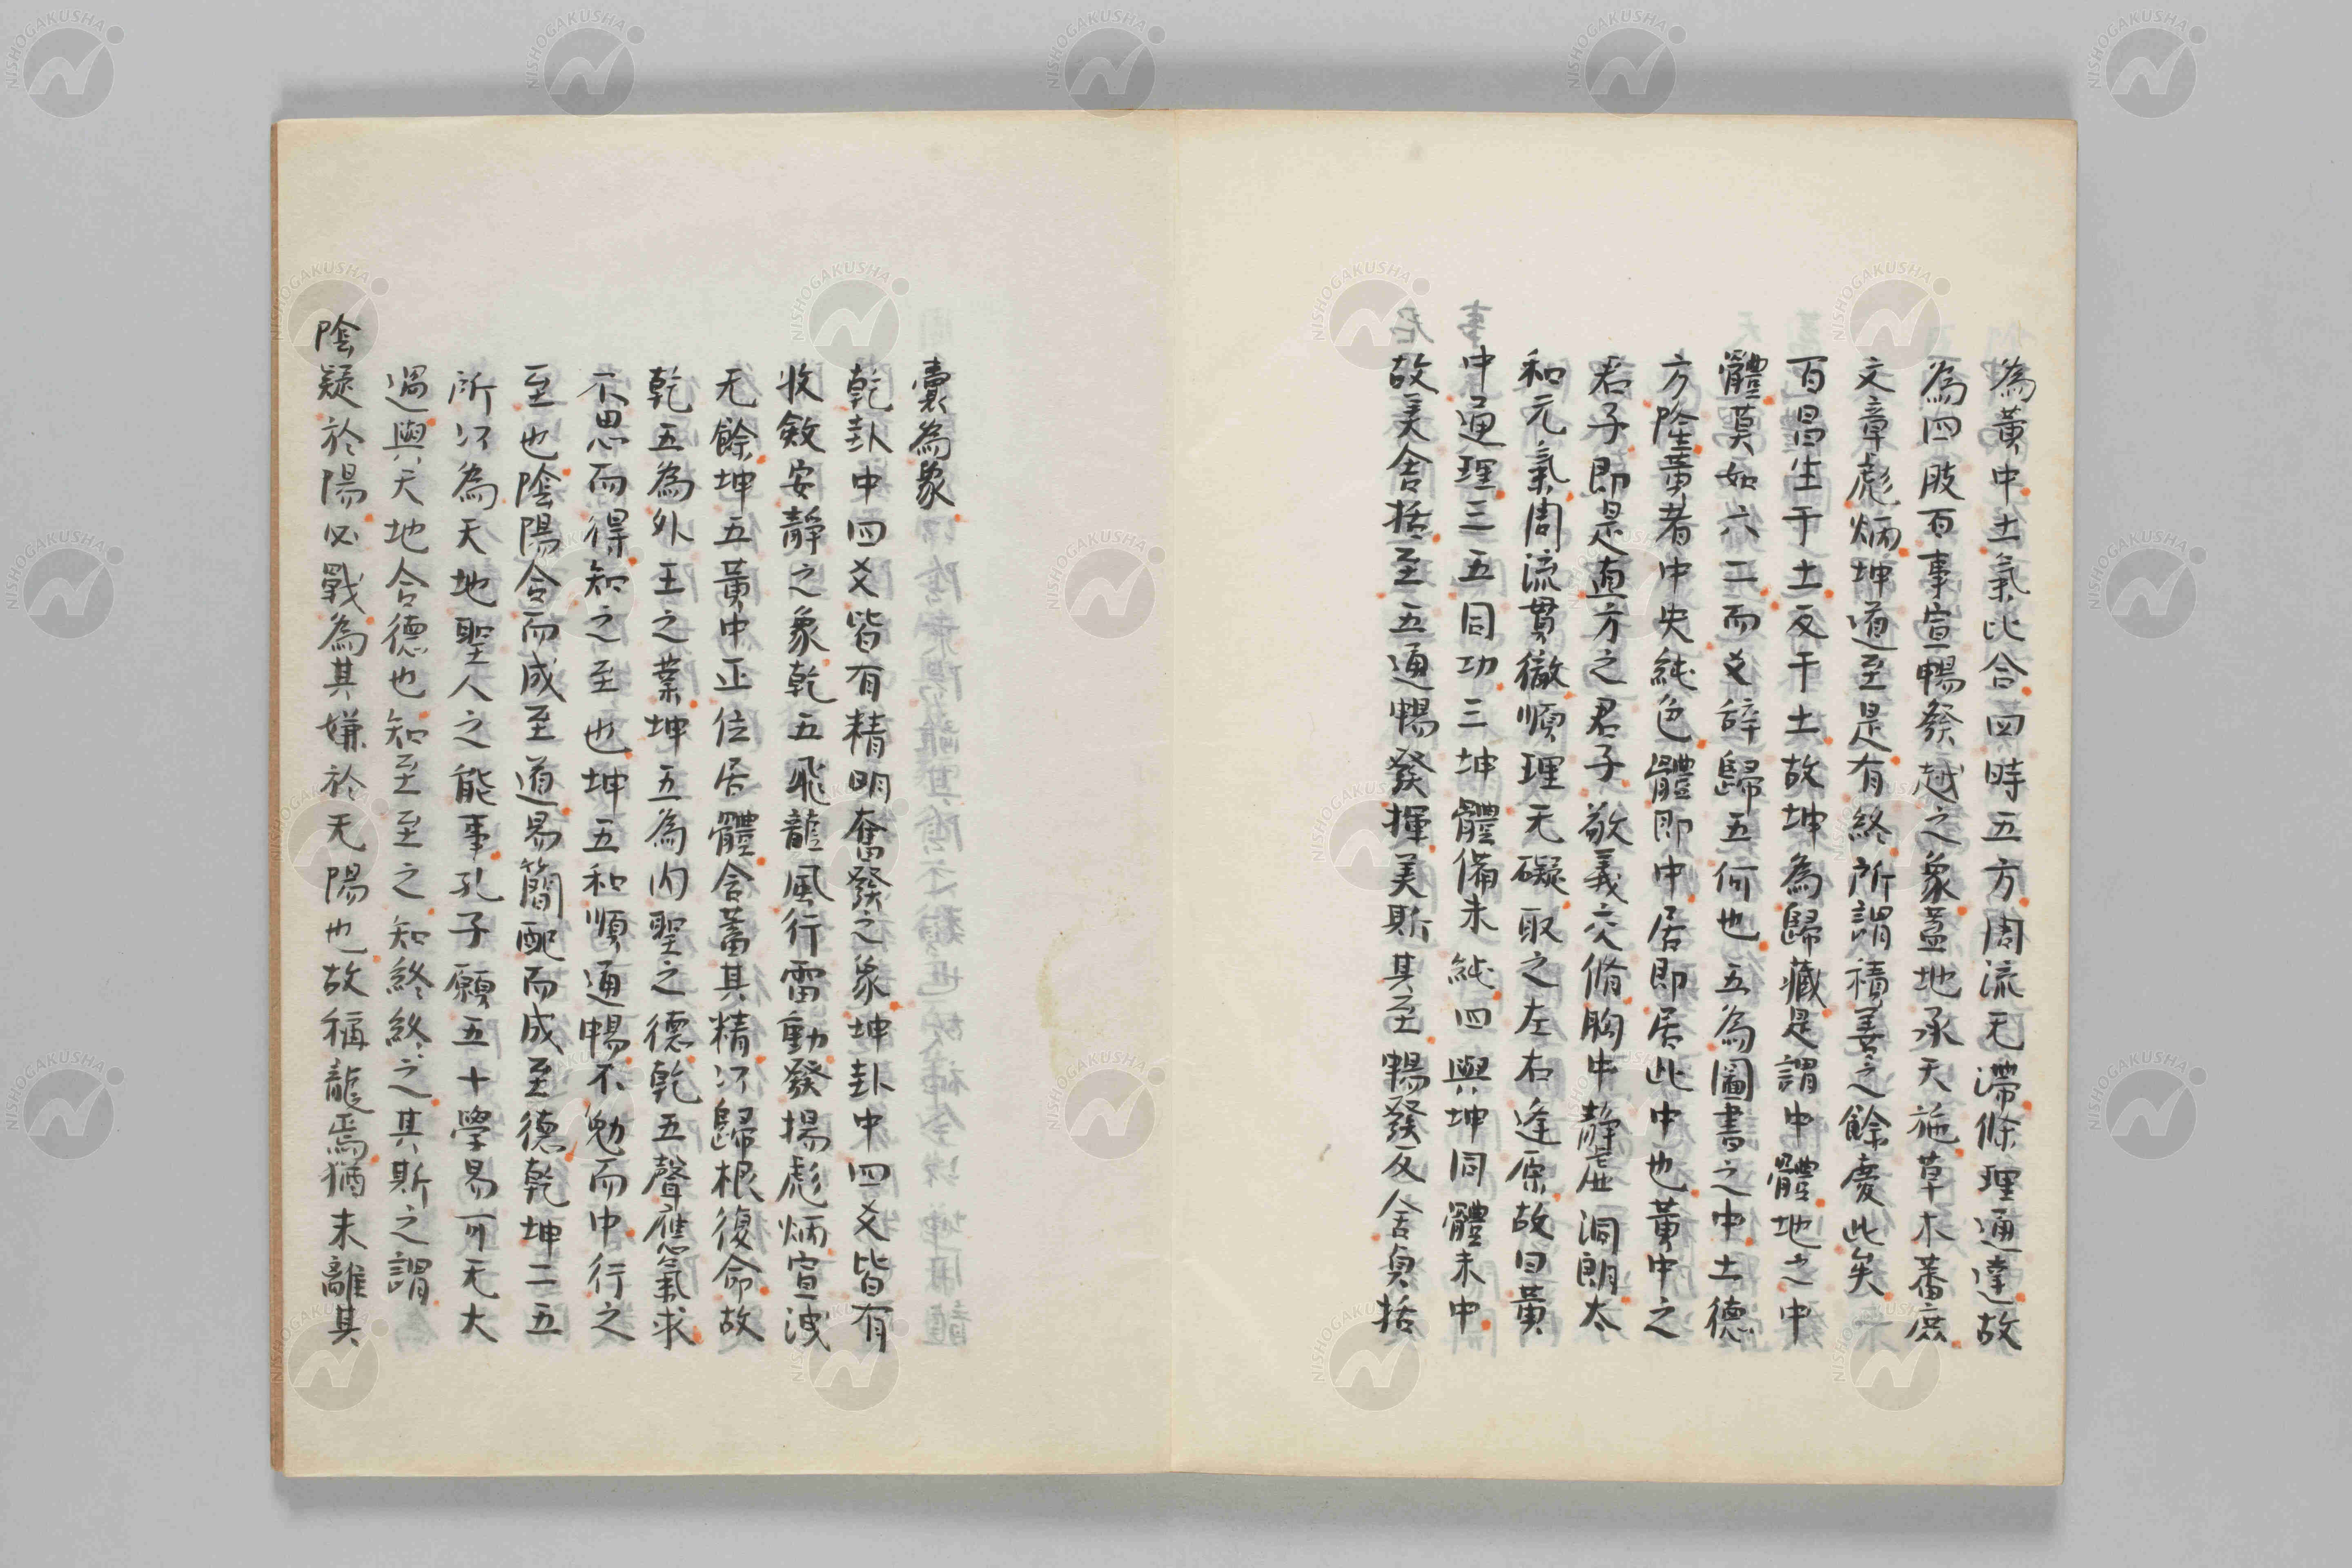 為黃中土氣比合四時五方周流无滯條理通達故
為四肢百事宣暢發越之象蓋地承天施草木蕃庶
文章彪炳坤道至是有終所謂積善之餘慶此矣
百昌生于土反于土故坤為歸藏是謂中體地之中
體莫如六二而爻辭歸五何也五為圖書之中土德
方隆黃者中央純色體即中居即居此中也黃中之
君子即是直方之君子敬義交脩胸中靜虛洞朗太
和元氣周流貫徹順理无礙取之左右逢原故曰黃
中通理三五同功三坤體備未純四與坤同體未中
故美含括至五通暢發揮美斯其至暢發反含與括
囊為象
乾卦中四爻皆有精明奮發之象坤卦中四爻皆有
收斂安靜之象乾五飛龍風行雷動發揚彪炳宣洩
无餘坤五黃中正位居體含蓄其精以歸根復命故
乾五為外王之業坤五為內聖之德乾五聲應氣求
不思而得知之至也坤五和順通暢不勉而中行之
至也陰陽合而成至道易簡配而成至德乾坤二五
所以為天地聖人之能事孔子願五十學易可无大
過與天地合德也知至至之知終終之其斯之謂
陰疑於陽必戰為其嫌於无陽也故稱龍焉猶未離其
NISHOGAKUSHA